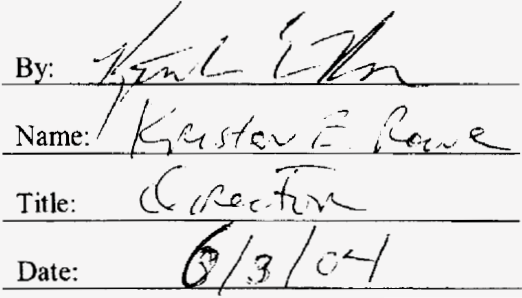 By:
Name: Kristov E. Rowe
Title: Director
Date: 8/3/04